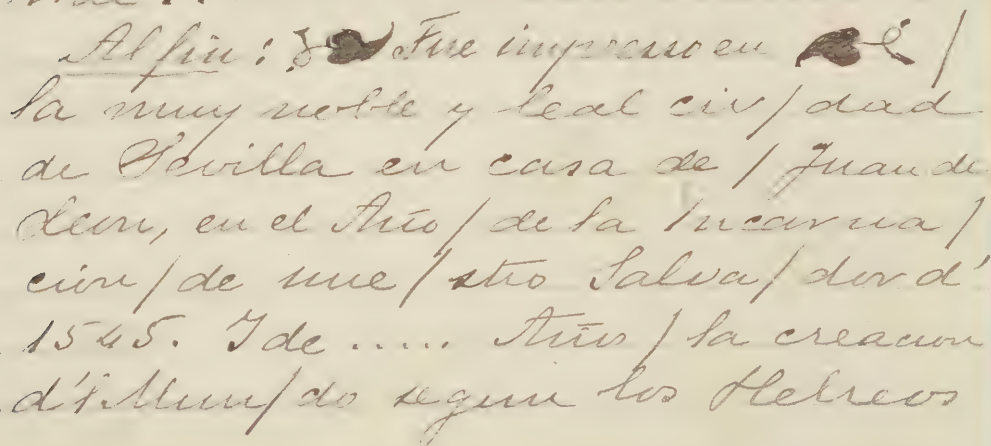 Al fin: ❧ Fue impresso en ☙ /
la muy noble y leal ciu / dad
de Sevilla en casa de / Juan de
Leon, en el Año / de la Incarna /
cion / de nue / stro Salva / dor d'
1545. I de ..... Año / la creacion
d'l Mun / do segun los Hebreos